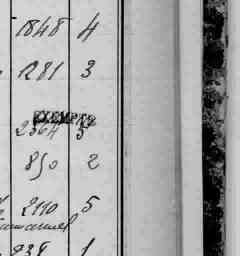 1848 4
1281 3
EXEMPTED
2364 3
850 2
2110 5
938 1